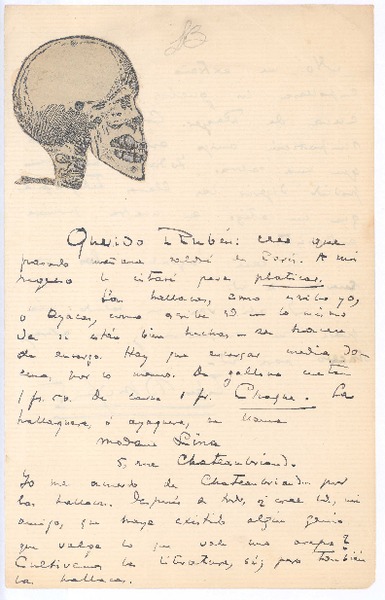 Querido Rubén: creo que
pasado mañana saldré de París. A mi
regreso le citaré para platicar.
Las hallacas, como escribo yo,
o ayacas, como escribe Ud – lo mismo
da si están bien hechas – se hacen
de encargo. Hay que encargar media do-
cena, por lo menos. De gallina cuestan
1 fr. 50. De carne 1 fr. Chaque. La
hallaquera, o ayaquera, se llama
Madame Lina
5, rue Chateaubriand.
Yo me acuerdo de Chateaubriand por
las hallacas. Después de todo, ¿cree Ud, mi
amigo, que haya existido algún genio
que valga lo que vale una arepa?
Cultivemos la literatura, sí; pero también
las hallacas.